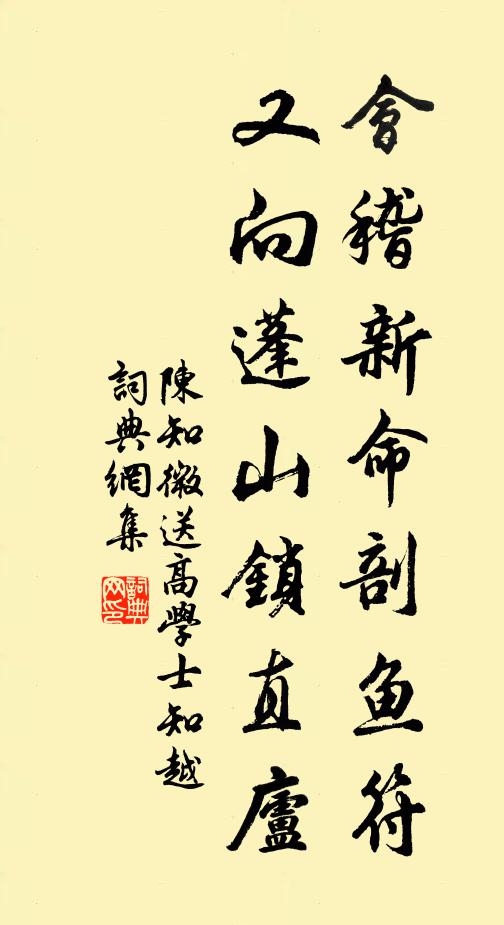 會稽新命剖鱼符
又向蓬山鎖直廬
陳知微送高學士知越
詞典網集
詞典文印